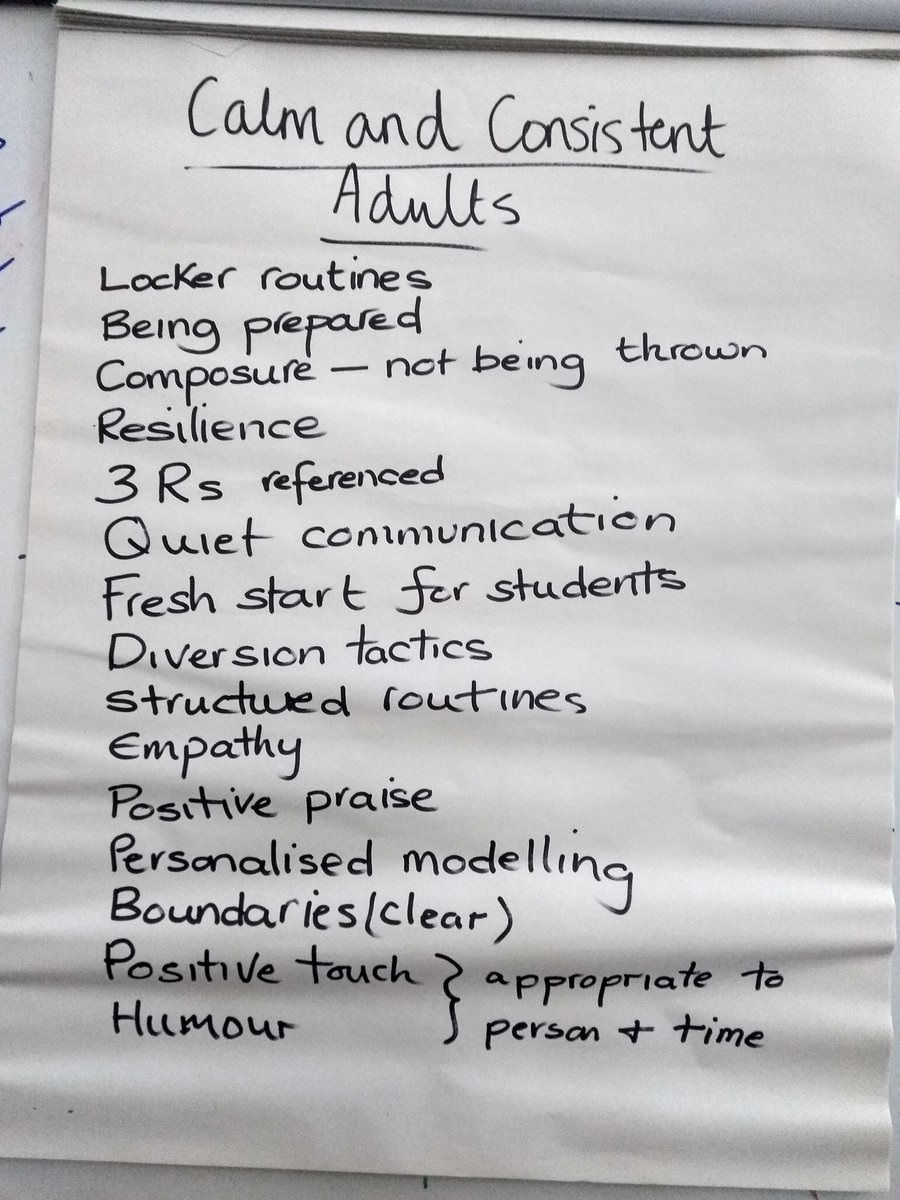 Calm and Consistent
Adults
Locker routines
Being prepared
Composure — not being thrown
Resilience
3 Rs referenced
Quiet communication
Fresh start for students
Diversion tactics
structured routines
Empathy
Positive praise
Personalised modelling
Boundaries/(clear)
Positive touch } appropriate to
Humour } person + time